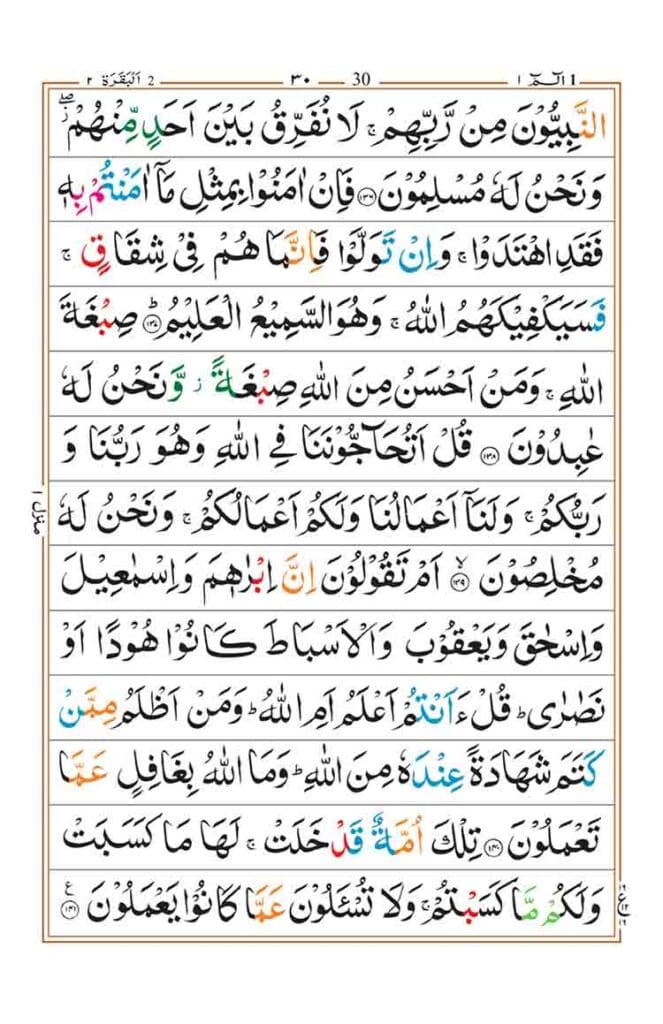 الٓمّٓ ١ 1 ٣٠ 30 اَلْبَقَرَة ٢ 2
النَّبِيُّوْنَ مِنْ رَّبِّهِمْ ۚ لَا نُفَرِّقُ بَيْنَ اَحَدٍ مِّنْهُمْ ۖ ز
وَنَحْنُ لَهٗ مُسْلِمُوْنَ ﴿۱۳۶﴾ فَاِنْ اٰمَنُوْا بِمِثْلِ مَاۤ اٰمَنْتُمْ بِهٖ
فَقَدِ اهْتَدَوْا ۚ وَاِنْ تَوَلَّوْا فَاِنَّمَا هُمْ فِيْ شِقَاقٍ ۚ
فَسَيَكْفِيْكَهُمُ اللّٰهُ ۚ وَهُوَ السَّمِيْعُ الْعَلِيْمُ ؕ ﴿۱۳۷﴾ صِبْغَةَ
اللّٰهِ ۚ وَمَنْ اَحْسَنُ مِنَ اللّٰهِ صِبْغَةً ز وَّنَحْنُ لَهٗ
عٰبِدُوْنَ ﴿۱۳۸﴾ قُلْ اَتُحَآجُّوْنَنَا فِي اللّٰهِ وَهُوَ رَبُّنَا وَ
رَبُّكُمْ ۚ وَلَنَاۤ اَعْمَالُنَا وَلَكُمْ اَعْمَالُكُمْ ۚ وَنَحْنُ لَهٗ
مُخْلِصُوْنَ ۙ ﴿۱۳۹﴾ اَمْ تَقُوْلُوْنَ اِنَّ اِبْرٰهٖمَ وَاِسْمٰعِيْلَ
وَاِسْحٰقَ وَيَعْقُوْبَ وَالْاَسْبَاطَ كَانُوْا هُوْدًا اَوْ
نَصٰرٰى ؕ قُلْ ءَاَنْتُمْ اَعْلَمُ اَمِ اللّٰهُ ؕ وَمَنْ اَظْلَمُ مِمَّنْ
كَتَمَ شَهَادَةً عِنْدَهٗ مِنَ اللّٰهِ ؕ وَمَا اللّٰهُ بِغَافِلٍ عَمَّا
تَعْمَلُوْنَ ﴿۱۴۰﴾ تِلْكَ اُمَّةٌ قَدْ خَلَتْ ۚ لَهَا مَا كَسَبَتْ
وَلَكُمْ مَّا كَسَبْتُمْ ۚ وَلَا تُسْئَلُوْنَ عَمَّا كَانُوْا يَعْمَلُوْنَ ﴿۱۴۱﴾ ع
منزل ١